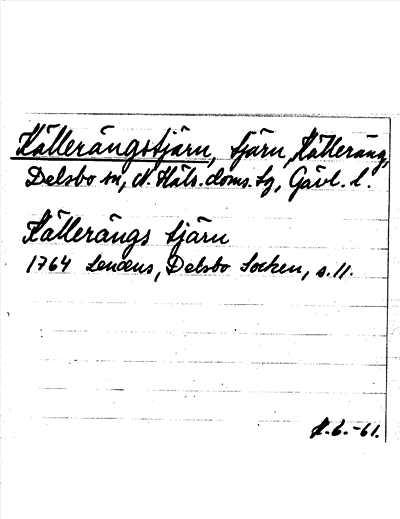 Källerängstjärn, tjärn, Källeräng,
Delsbo sn, N. Häls. doms. tg, Gävl. l.
Källerängs tjärn
1764 Lenæus, Delsbo Socken, s. 11.
-61.